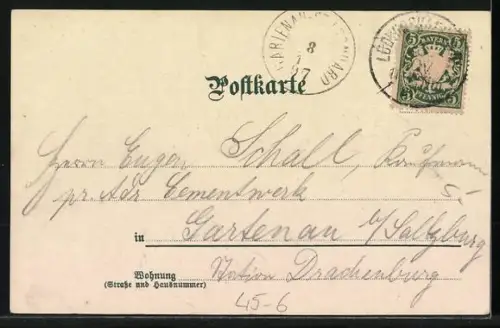 GARTENAU-ST. LEONHARD
8
7
97
BAYERN
5 5
5 PFENNIG 5
Postkarte
Herrn Eugen Schall, Kaufmann
pr. Adr. Cementwerk 5-
in Gartenau b/Salzburg
Wohnung
(Straße und Hausnummer)
Station Drachenburg
45-6